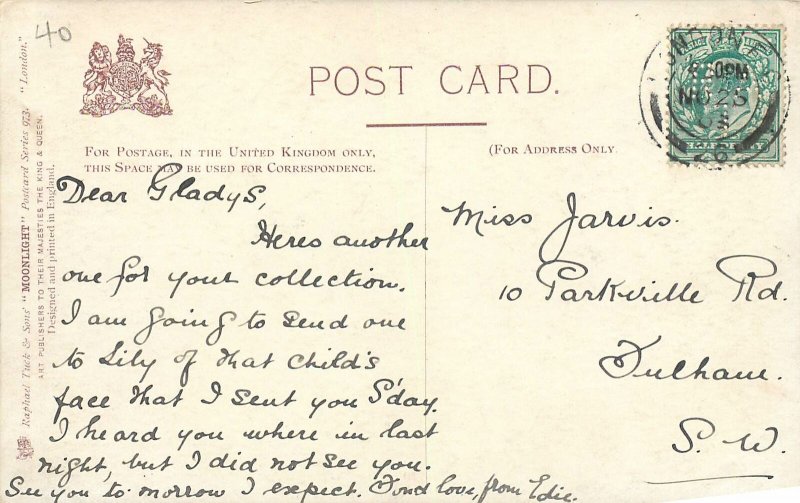 40
POST CARD.
FOR POSTAGE, IN THE UNITED KINGDOM ONLY,
THIS SPACE MAY BE USED FOR CORRESPONDENCE.
(FOR ADDRESS ONLY.
Raphael Tuck & Sons' "MOONLIGHT" Postcard Series 973. "London."
ART PUBLISHERS TO THEIR MAJESTIES THE KING & QUEEN.
Designed and printed in England.
Dear Gladys,
Heres another
one for your collection.
I am going to send one
to Lily of that child's
face that I sent you S'day.
I heard you where in last
night, but I did not see you.
See you to morrow I expect. Fond love, from Edie.
Miss Jarvis.
10 Parkville Rd.
Fulham.
S. W.
LONDON
PM
NO 25
03
26